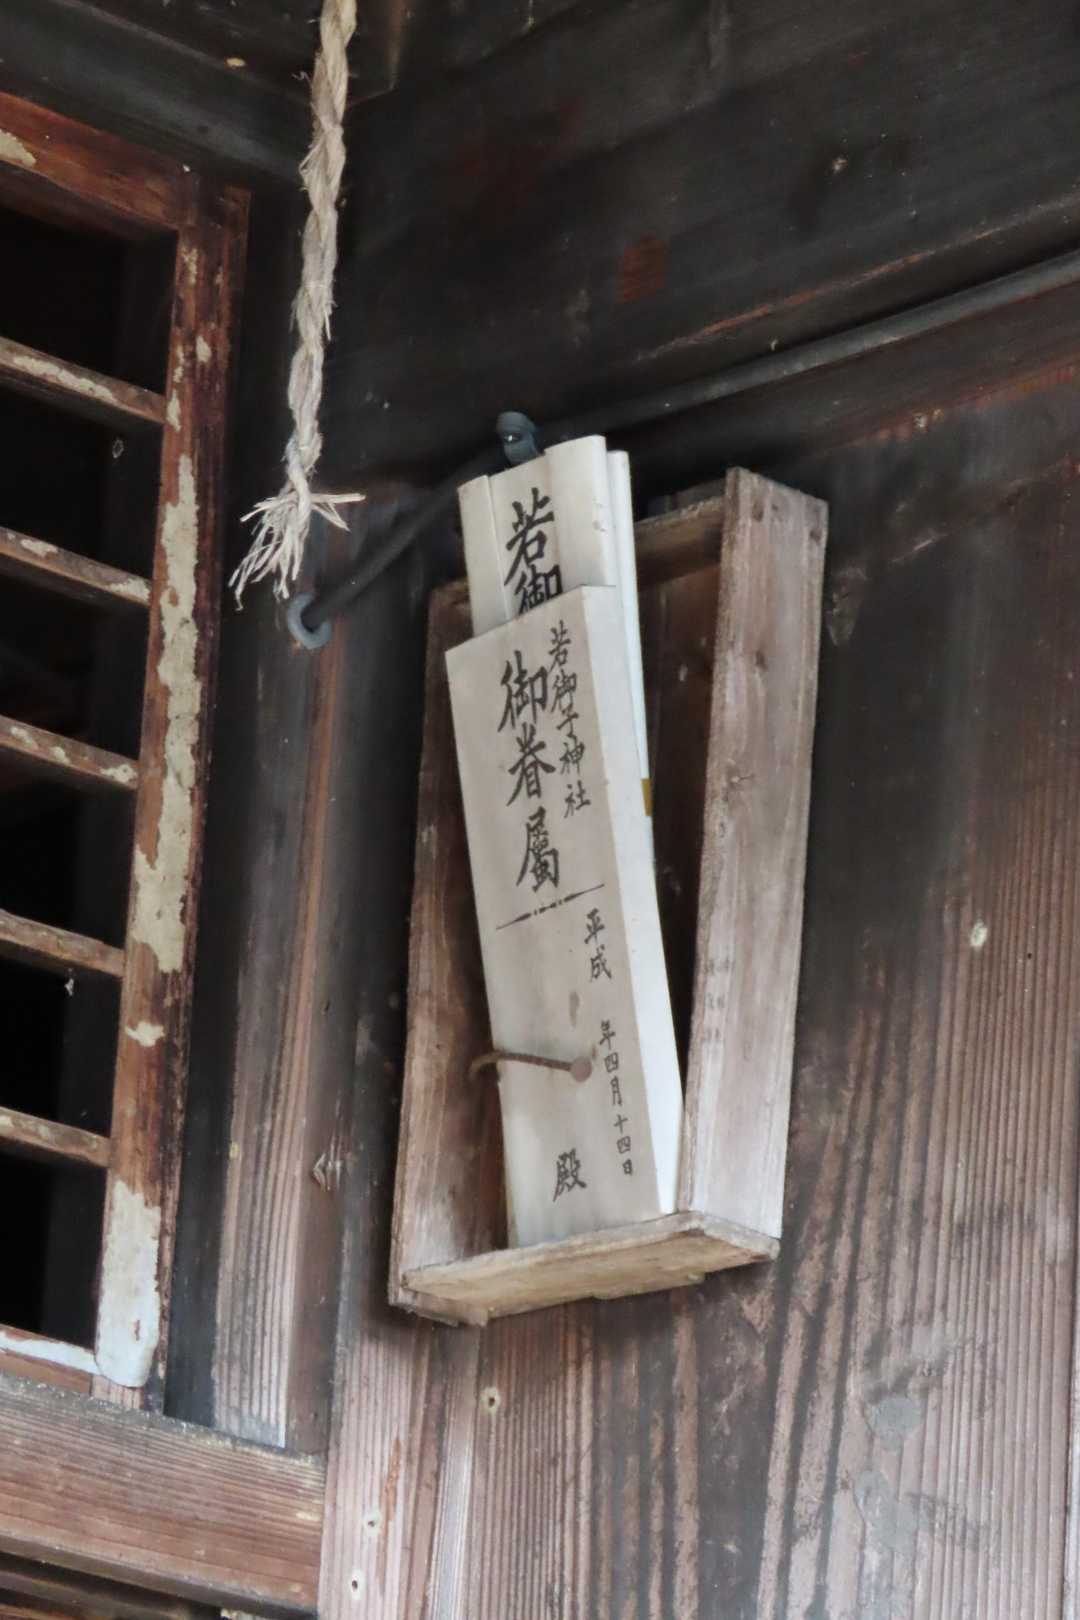 若御
若御子神社
御眷属
平成　年四月十四日
殿